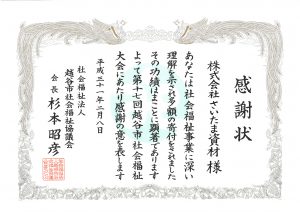 感謝状
株式会社さいたま資材 様
あなたは社会福祉事業に深い
理解を示され多額の寄付をされました
その功績はまことに顕著であります
よって第十七回越谷市社会福祉
大会にあたり感謝の意を表します
平成三十一年二月八日
社会福祉法人
越谷市社会福祉協議会
会長 杉本昭彦